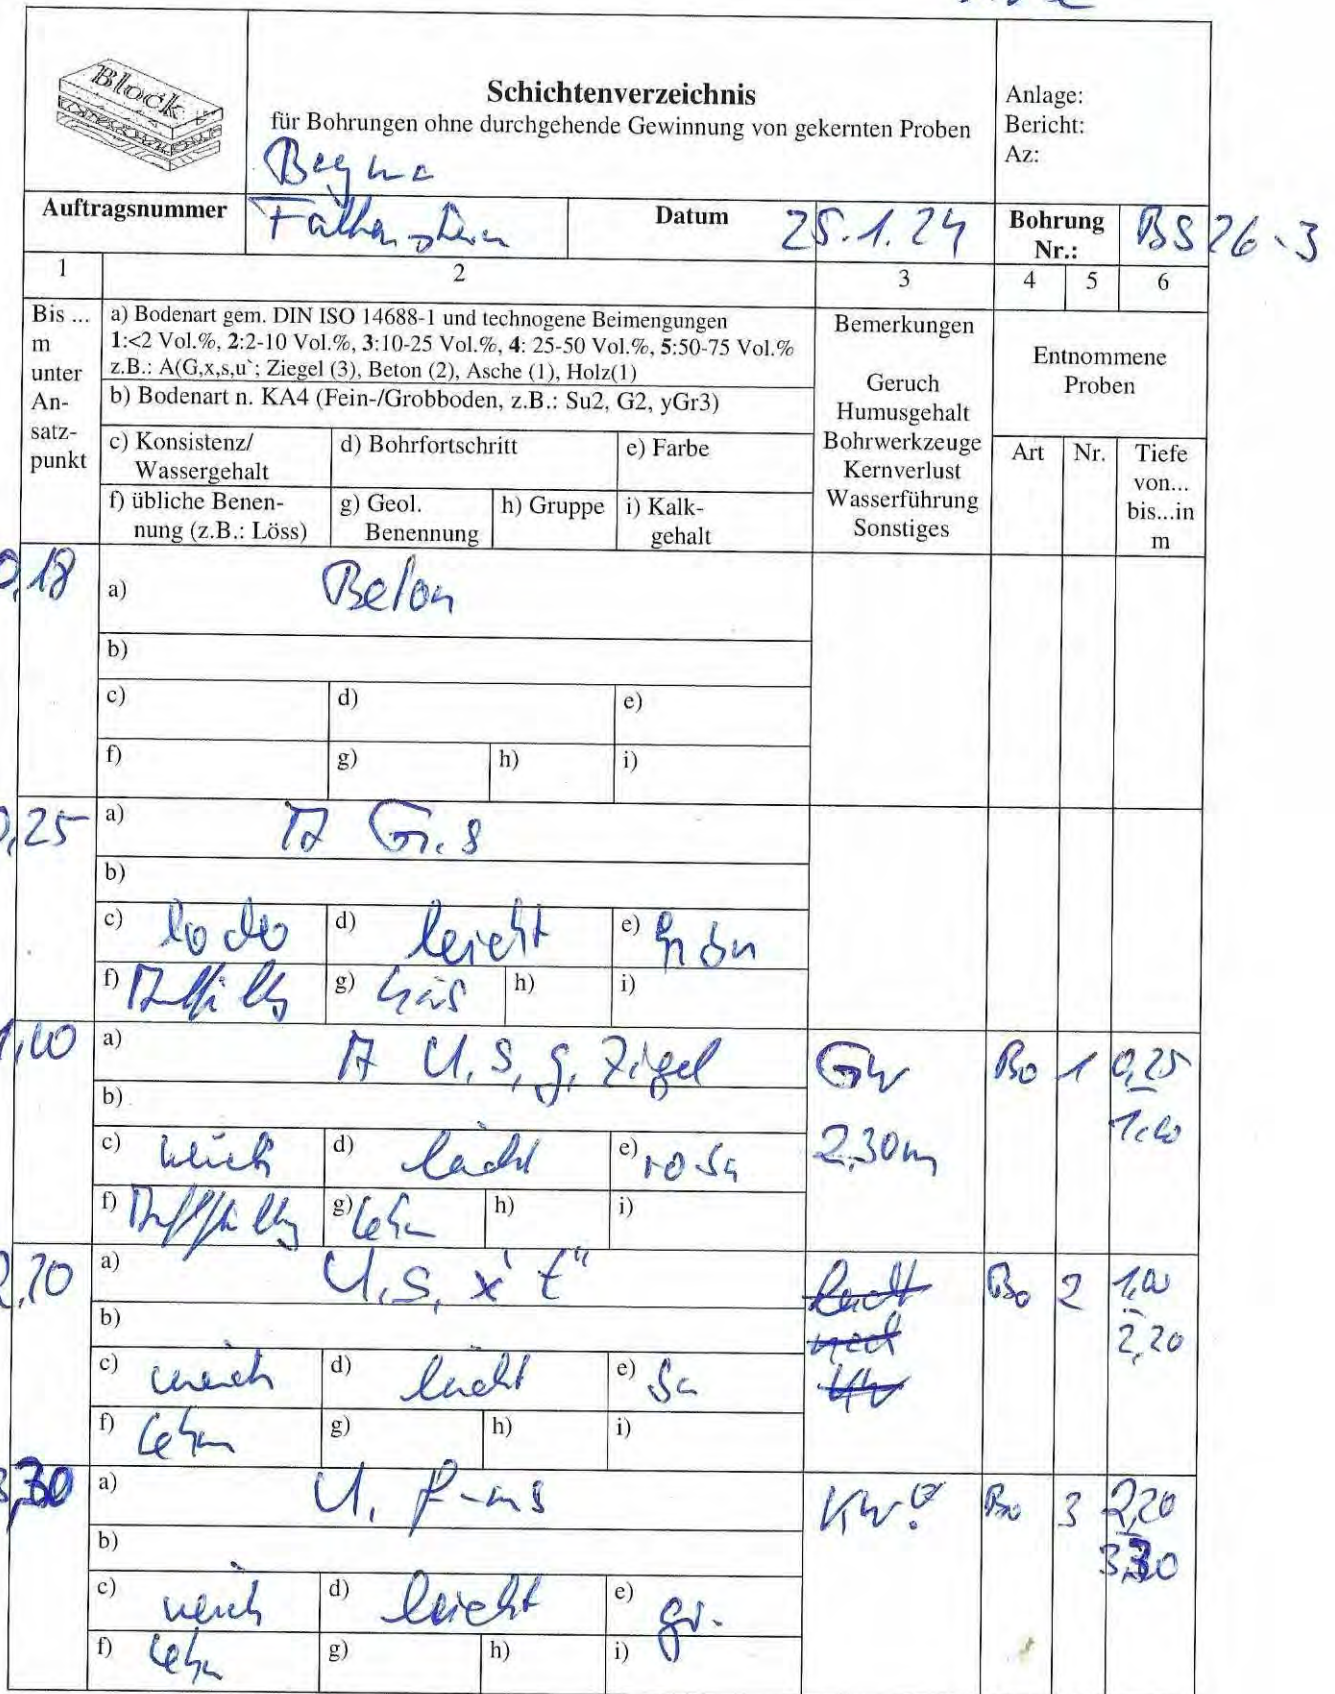 Block
Schichtenverzeichnis
für Bohrungen ohne durchgehende Gewinnung von gekernten Proben
Anlage:
Bericht:
Az:
Auftragsnummer
Datum 25.1.24
Bohrung Nr.: BS 26-3
1 2 3 4 5 6
Bis ...
m
unter
An-
satz-
punkt
a) Bodenart gem. DIN ISO 14688-1 und technogene Beimengungen
1:<2 Vol.%, 2:2-10 Vol.%, 3:10-25 Vol.%, 4: 25-50 Vol.%, 5:50-75 Vol.%
z.B.: A(G,x,s,u`; Ziegel (3), Beton (2), Asche (1), Holz(1)
b) Bodenart n. KA4 (Fein-/Grobboden, z.B.: Su2, G2, yGr3)
c) Konsistenz/
Wassergehalt
d) Bohrfortschritt
e) Farbe
f) übliche Benen-
nung (z.B.: Löss)
g) Geol.
Benennung
h) Gruppe
i) Kalk-
gehalt
Bemerkungen
Geruch
Humusgehalt
Bohrwerkzeuge
Kernverlust
Wasserführung
Sonstiges
Entnommene
Proben
Art
Nr.
Tiefe
von...
bis...in
m
0,18
a) Beton
b)
c) d) e)
f) g) h) i)
0,25
a) A G, s
b)
c) d) leicht e)
f) g) h) i)
a) A U, s, g, Zigel
b)
c) weich d) leicht e) rosa
f) g) Lehm h) i)
GW
2,30m
Bo 1 0,25
a) U, s, x' t"
b)
c) weich d) leicht e)
f) Lehm g) h) i)
Bo 2
2,20
3,30
a) U, f-ms
b)
c) weich d) leicht e) gr.
f) Lehm g) h) i)
KW?
Bo 3 2,20
3,30